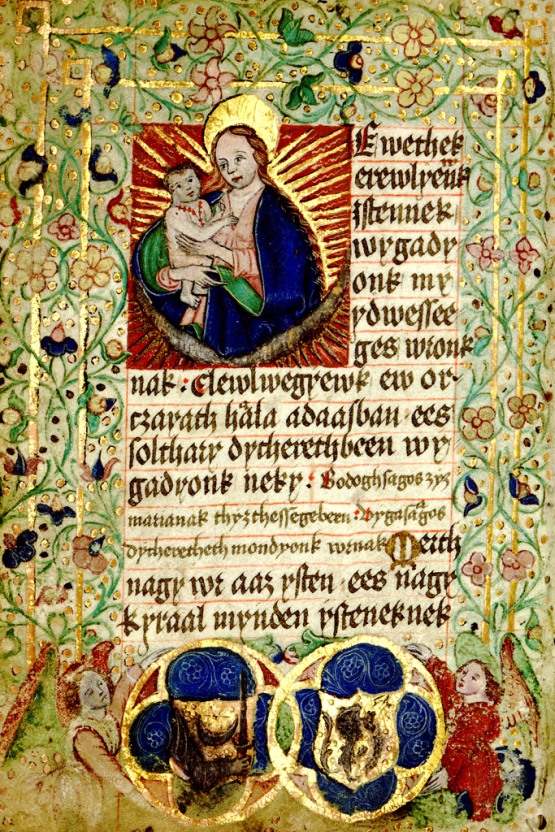 Ewethek
erewlyenk
ystennek
wygady
onk my
ydwessee
ges wronk
nak : elewlwegyewk ew or-
czarath hala adaasban · ees
solthary dycherethbeen wy
gadyonk neky : Bodoghsagos zyz
marianak thyzthessegebeen : Vygasagos
dycheretheth mondyonk wrnak Merth
nagy wr aaz ysten · ees nagy
kyraal mynden ysteneknek